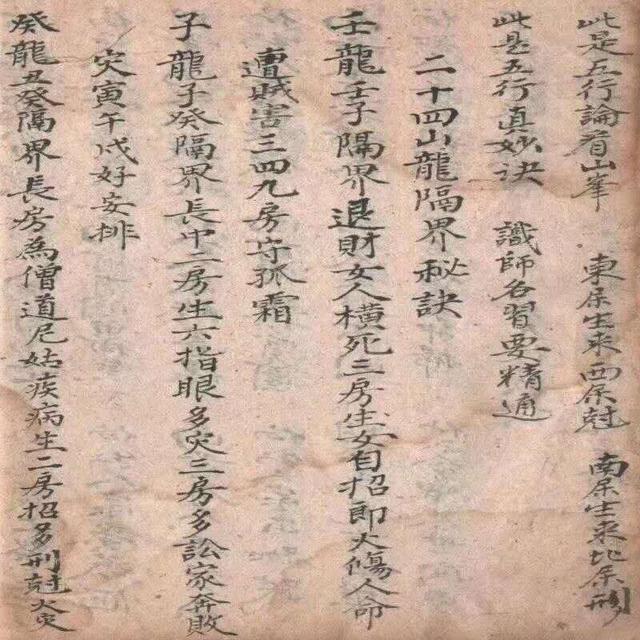 此是五行論看山峯 東京生來西京尅 南京生來北京刑
此是五行真妙訣 識師各習要精通
二十四山龍隔界秘訣
壬龍壬子隔界退財女人橫死二房生女自招郎火傷人命
遭賊害三四九房守孤霜
子龍子癸隔界長中二房生六指眼多灾三房多訟家奔敗
灾寅午戌好安排
癸龍丑癸隔界長房為僧道尼姑疾病生二房招多刑尅火灾